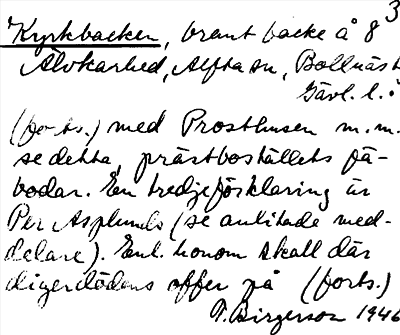 3
Kyrkbacken, brant backe å 8
Älvkarhed, Alfta sn, Bollnäs t
Gävl. l.
(forts.) med Prosthusen m.m.
se detta, prästboställets fä-
bodar. En tredje förklaring är
Per Asplunds (se anlitade med-
delare). Enl. honom skall där
digerdödens offer på (forts.)
P. Birgerson 1946